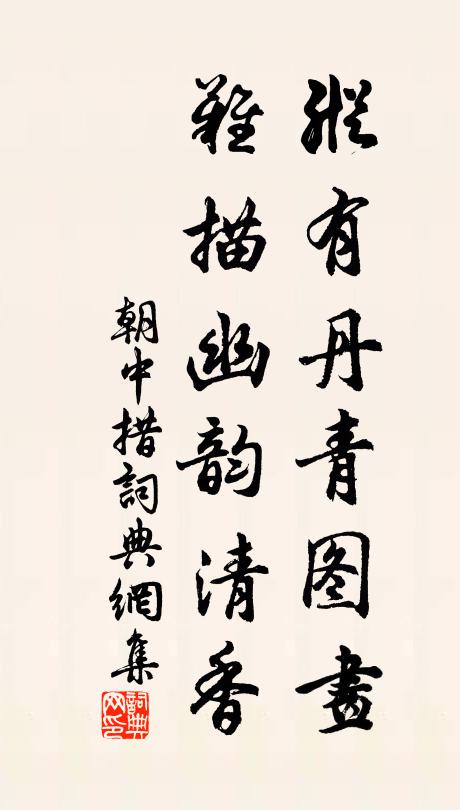 縱有丹青图畫
難描幽韵清香
朝中措詞典網集
詞典
网印